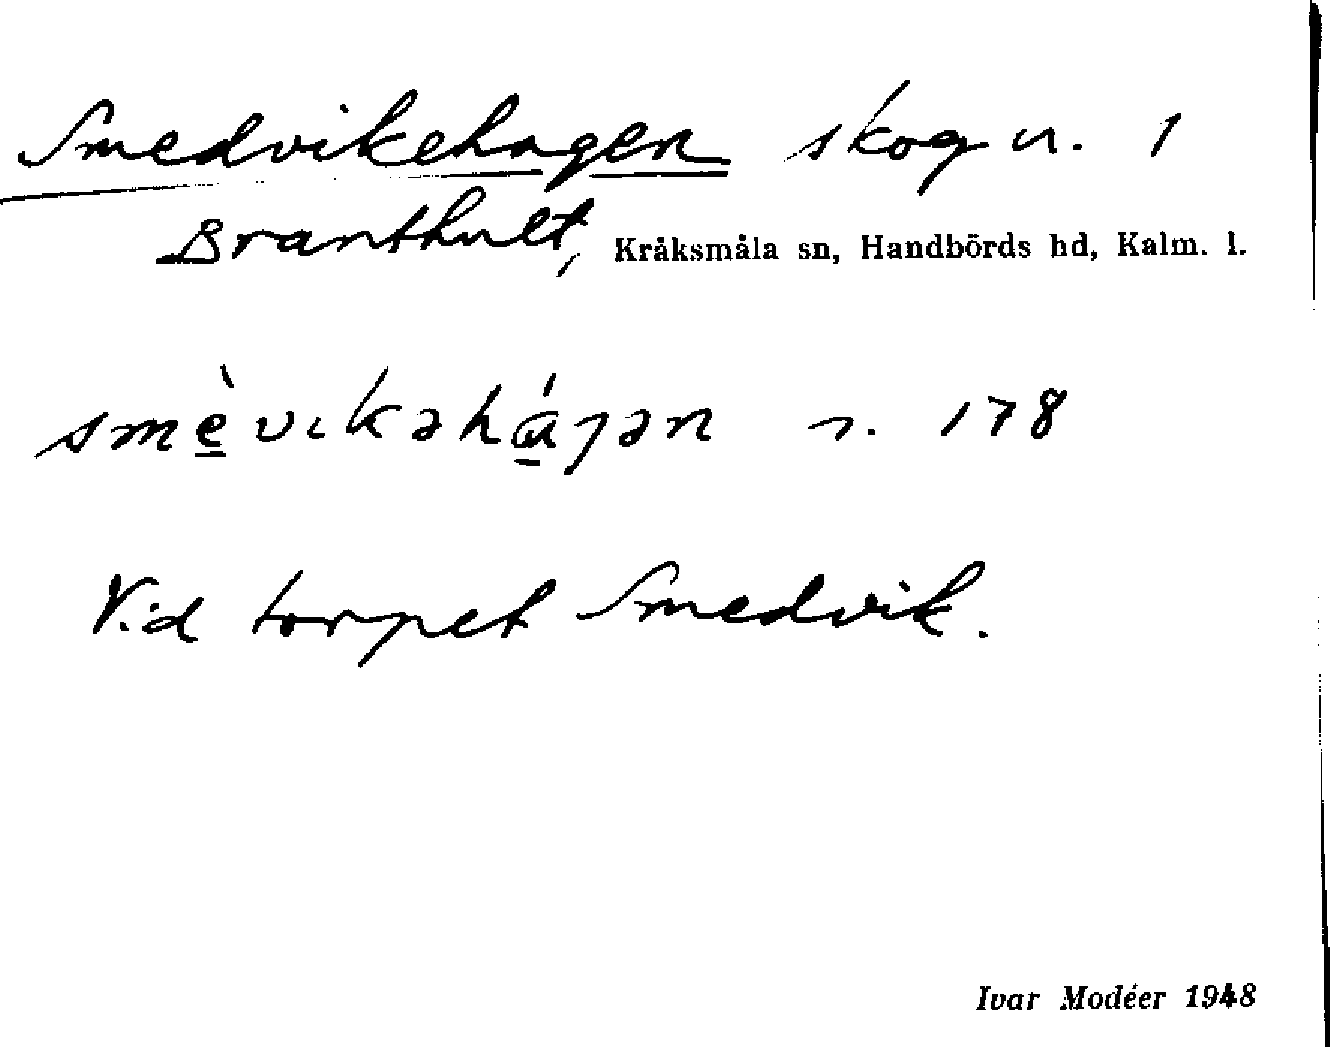 Smedvikehagen skog n. 1
Branthult, Kråksmåla sn, Handbörds hd, Kalm. l.
smè̱vıkəhá̱gən n. 178
Vid torpet Smedvik.
Ivar Modéer 1948